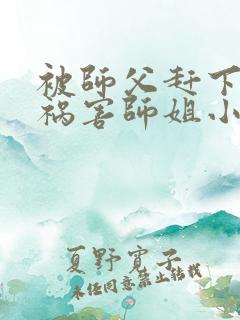 被師父赶下
祸害師姐小
夏野寛子
未经同意禁止转载